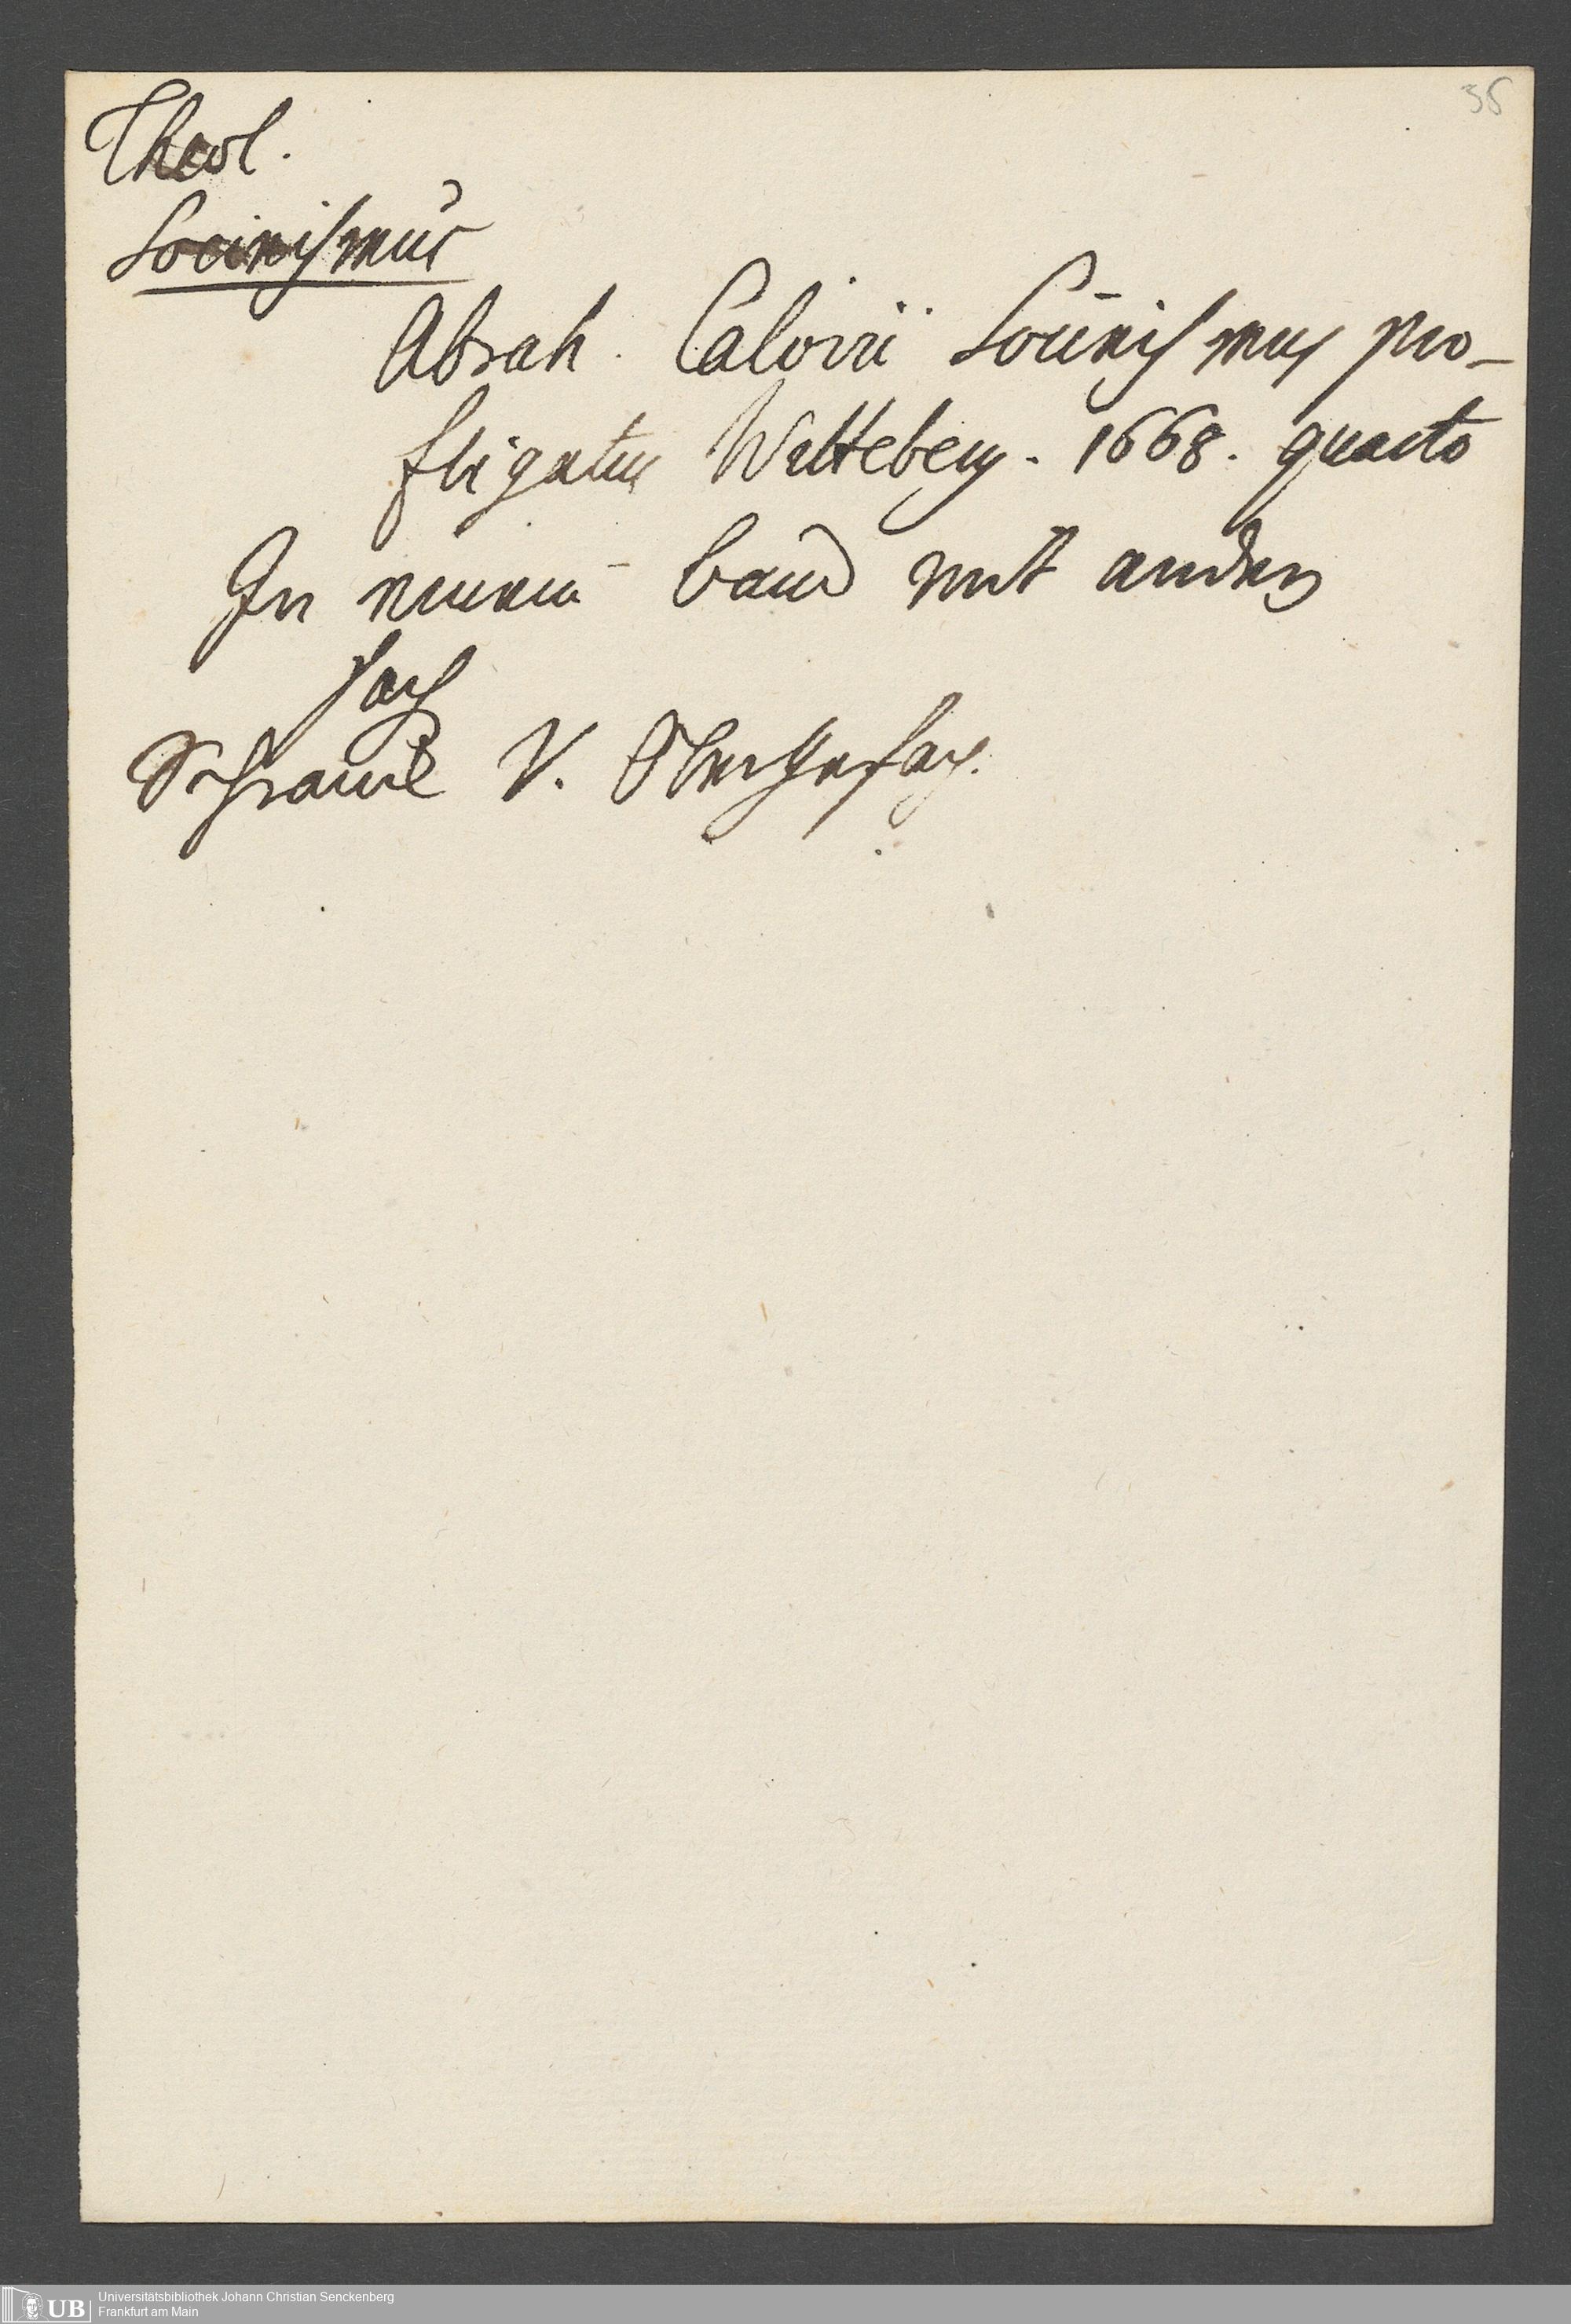 35
Theol.
Socinismus
Abrah. Calovii Socinismus pro-
fligatus Witteberg. 1668. quarto
In einem band mit andern
sach
Schranck V. Oberste fach.
Universitätsbibliothek Johann Christian Senckenberg
Frankfurt am Main
UB